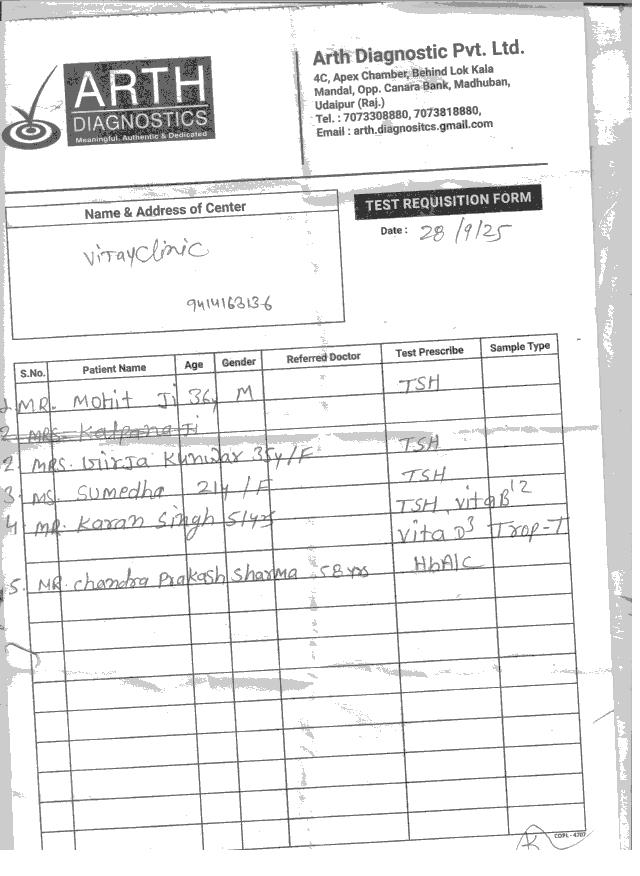 ARTH
DIAGNOSTICS
Meaningful, Authentic & Dedicated
Arth Diagnostic Pvt. Ltd.
4C, Apex Chamber, Behind Lok Kala
Mandal, Opp. Canara Bank, Madhuban,
Udaipur (Raj.)
Tel. : 7073308880, 7073818880,
Email : arth.diagnositcs.gmail.com
Name & Address of Center
TEST REQUISITION FORM
Date : 28/9/25
VIJAY Clinic
9414163136
S.No. Patient Name Age Gender Referred Doctor Test Prescribe Sample Type
1. MR. Mohit Ji 36y M TSH
2 MRS. Kalpana Ji
2. MRS. Kunwar 35y/F TSH
3. MS. Sumedha 21y/F TSH
4 MR. Karan Singh 51yrs TSH, vita B12
vita D3 Trop-T
5. MR. chandra Prakash Sharma 58 yrs HbA1C
COPL - 4707